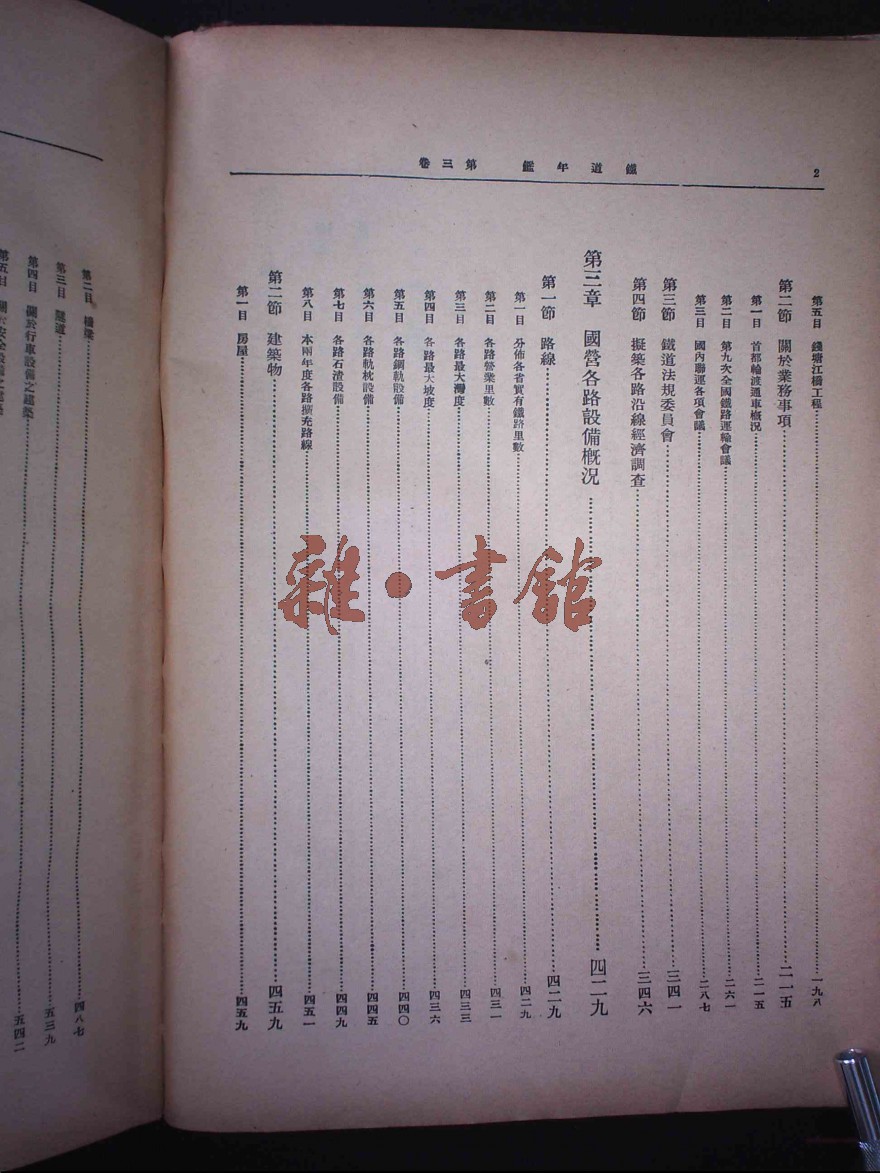 鐵道年鑑 第三卷
2
第五目 錢塘江橋工程 一九八
第二節 關於業務事項 二一五
第一目 首都輪渡通車概況 二一五
第二目 第九次全國鐵路運輸會議 二六一
第三目 國內聯運各項會議 二八七
第三節 鐵道法規委員會 三四一
第四節 擬築各路沿線經濟調查 三四六
第三章 國營各路設備概況 四二九
第一節 路線 四二九
第一目 分佈各省實有鐵路里數 四二九
第二目 各路營業里數 四三一
第三目 各路最大灣度 四三三
第四目 各路最大坡度 四三六
第五目 各路鋼軌設備 四四〇
第六目 各路軌枕設備 四四五
第七目 各路石渣設備 四四九
第八目 本兩年度各路擴充路線 四五一
第二節 建築物 四五九
第一目 房屋 四五九
第二目 橋梁 四八七
第三目 隧道 五三九
第四目 關於行車設備之建築 五四二
第五目
雜·書館